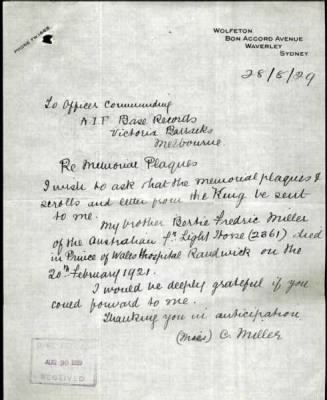 PHONE FW 1886
WOLFETON
BON ACCORD AVENUE
WAVERLEY
SYDNEY
28/8/29
To Officer Commanding
A.I.F Base Records
Victoria Barracks
Melbourne
Re Memorial Plaques
I wish to ask that the memorial plaques &
scrolls and letter from the King be sent
to me.
My brother Bertie Fredric Miller
of the Australian 7th Light Horse (2361) died
in Prince of Wales Hospital Randwick on the
20th February 1921.
I would be deeply grateful if you
could forward to me.
Thanking you in anticipation
(Miss) C. Miller
AUG 30 1929
RECEIVED